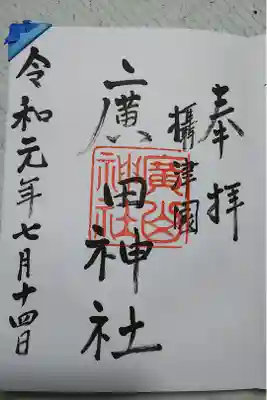 奉拝
攝津國
廣田神社
廣田神社
令和元年七月十四日